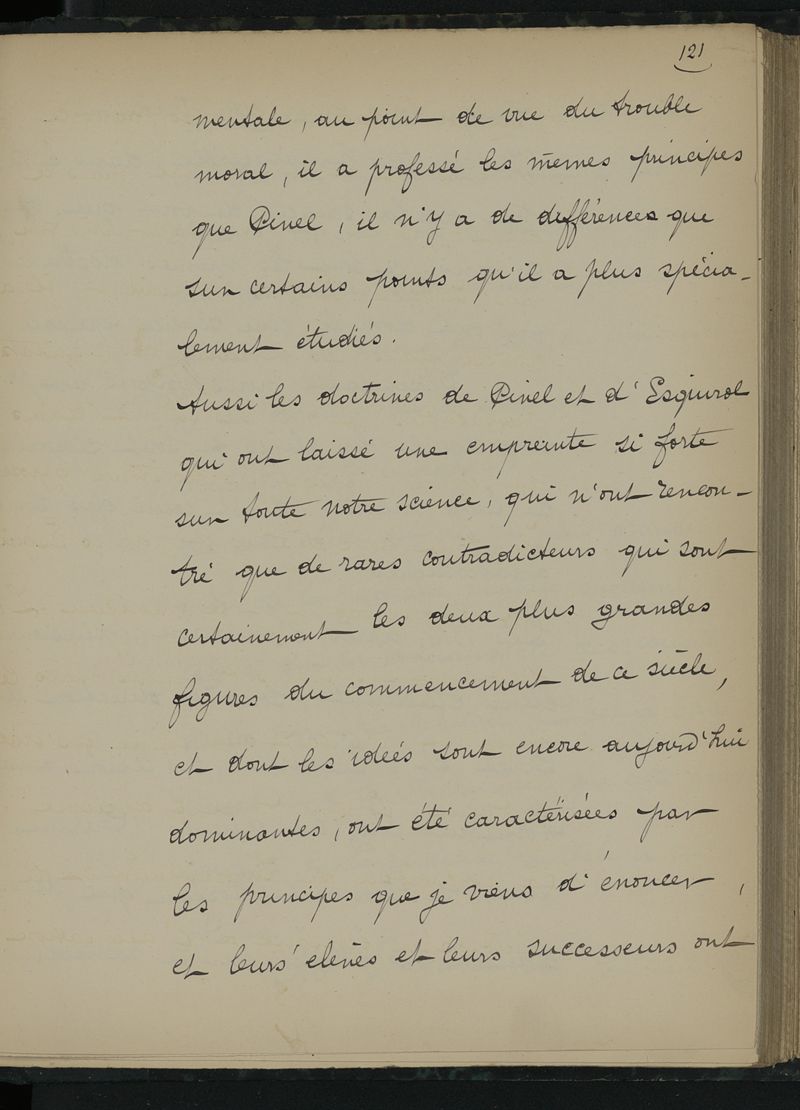 121
mentale, au point de vue du trouble
moral, il a professé les mêmes principes
que Pinel, il n'y a de différences que
sur certains points qu'il a plus spécia-
lement étudiés.
Aussi les doctrines de Pinel et d'Esquirol
qui ont laissé une empreinte si forte
sur toute notre science, qui n'ont rencon-
tré que de rares contradicteurs qui sont
certainement les deux plus grandes
figures du commencement de ce siècle,
et dont les idées sont encore aujourd'hui
dominantes, ont été caractérisées par
les principes que je viens d'énoncer,
et leurs élèves et leurs successeurs ont